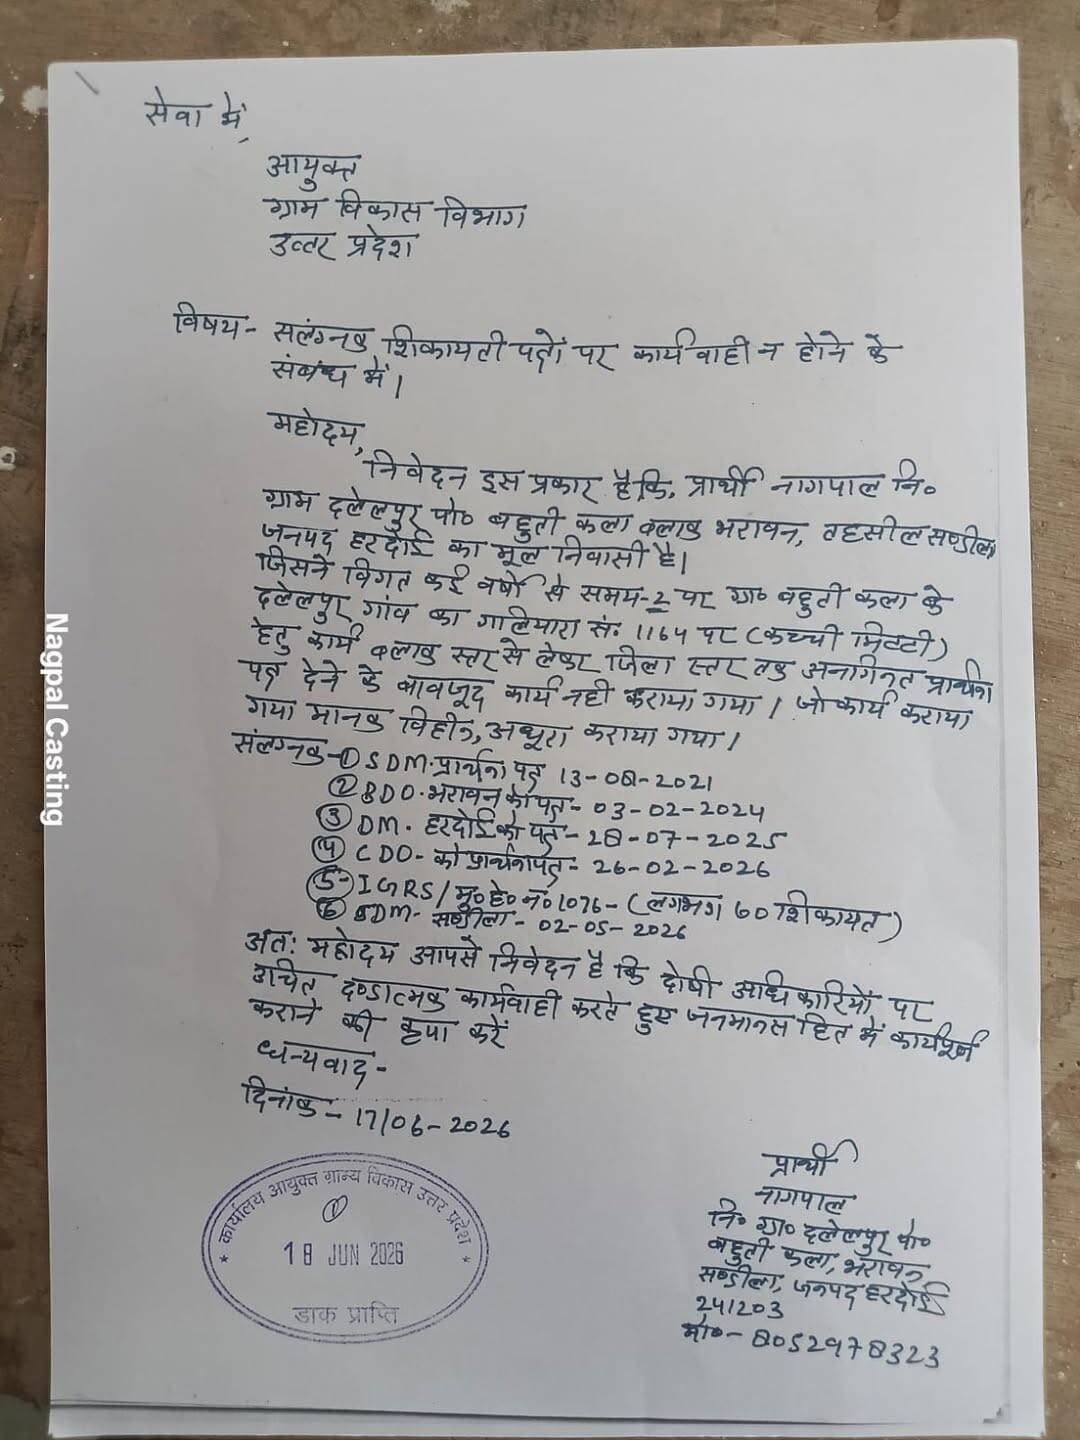 सेवा में,
आयुक्त
ग्राम विकास विभाग
उत्तर प्रदेश
विषय- सलंग्नक शिकायती पत्रों पर कार्यवाही न होने के
संबंध में।
महोदय,
निवेदन इस प्रकार है कि, प्रार्थी नागपाल नि०
ग्राम दलेलपुर पो० बहुती कला ब्लाक भरावन, तहसील सण्डीला
जनपद हरदोई का मूल निवासी है।
जिसने विगत कई वर्षों से समय-2 पर ग्रा० बहुती कला के
दलेलपुर गांव का गालियारा सं. 1164 पर (कच्ची मिटटी)
हेतु कार्य ब्लाक स्तर से लेकर जिला स्तर तक अनगिनत प्रार्थना
पत्र देने के बावजूद कार्य नही कराया गया। जो कार्य कराया
गया मानक विहीन, अधूरा कराया गया।
संलग्नक-① SDM. प्रार्थना पत्र 13-08-2021
② BDO. भरावन को पत्र- 03-02-2024
③ DM. हरदोई को पत्र- 28-07-2025
④ CDO- को प्रार्थनापत्र- 26-02-2026
⑤- IGRS/मु० हे० नं० 1076- (लगभग 60 शिकायत)
⑥ SDM- सण्डीला- 02-05-2026
अतः महोदय आपसे निवेदन है कि दोषी अधिकारियों पर
उचित दण्डात्मक कार्यवाही करते हुए जनमानस हित में कार्यपूर्ण
कराने की कृपा करें
धन्यवाद-
दिनांक- 17/06-2026
प्रार्थी
नागपाल
नि० ग्रा० दलेलपुर पो०
बहुती कला, भरावन
सण्डीला, जनपद हरदोई
241203
मो०- 8052978323
कार्यालय आयुक्त ग्राम्य विकास उत्तर प्रदेश
①
18 JUN 2026
डाक प्राप्ति
Nagpal Casting